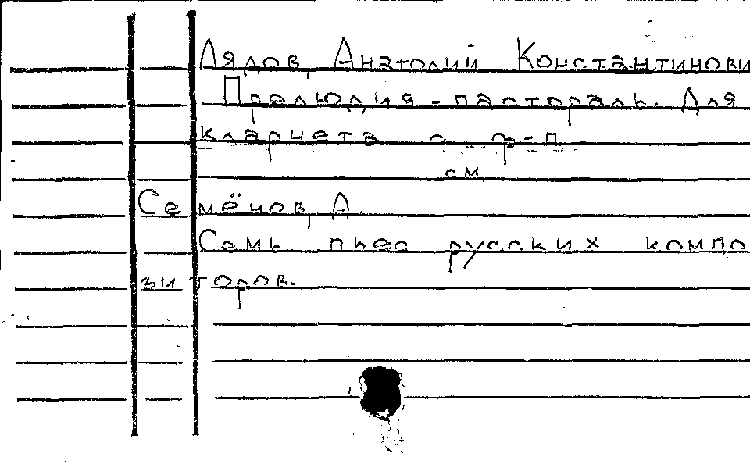 Лядов, Анатолий Константинови
Прелюдия-пастораль. Для
кларнета с ф-п.
см.
Семёнов, А
Семь пьес русских компо
зиторов.